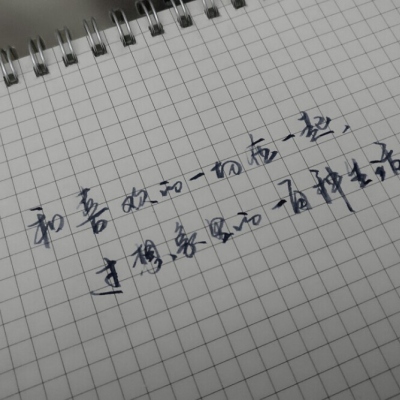 和喜欢的一切在一起，
过想象里的一百种生活